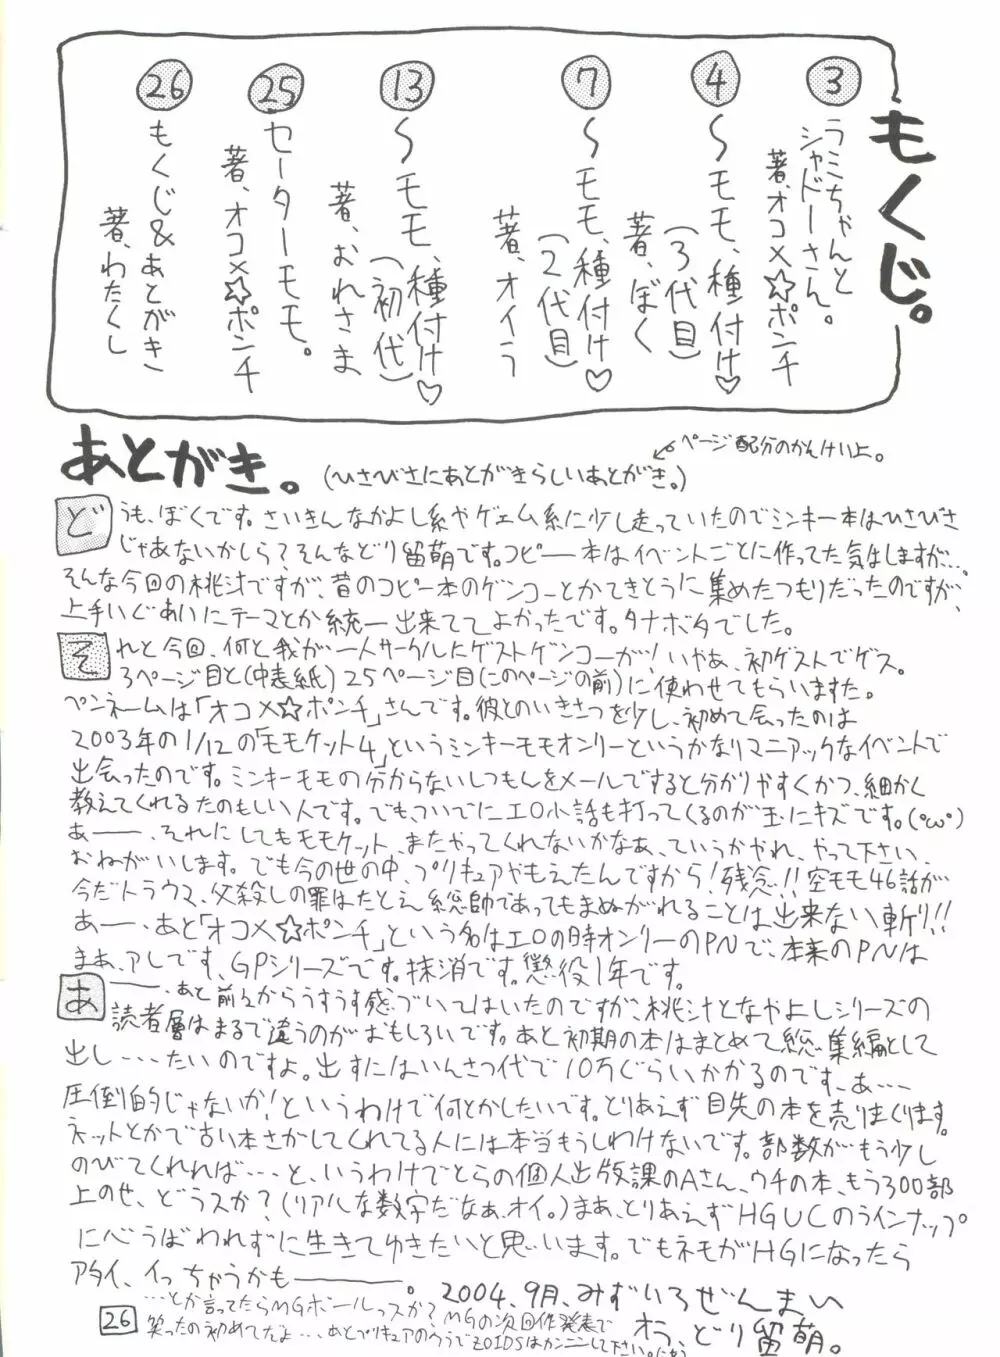 もくじ。
3
ラミちゃんと
シャドーさん。
著、オコメ☆ポンチ
4
〜モモ、種付け♡
(3代目)
著、ぼく
7
〜モモ、種付け♡
(2代目)
著、オイラ
13
〜モモ、種付け♡
(初代)
著、おれさま
25
セーターモモ。
著、オコメ☆ポンチ
26
もくじ&あとがき
著、わたくし
ページ配分のかんけい上。
あとがき。(ひさびさにあとがきらしいあとがき。)
どうも、ぼくです。さいきんなかよし系やゲェム系に少し走っていたのでミンキー本はひさびさ
じゃあないかしら?そんなどり留萌です。コピー本はイベントごとに作ってた気はしますが…。
そんな今回の桃汁ですが、昔のコピー本のゲンコーとかてきとうに集めたつもりだったのですが、
上手いぐあいにテーマとか統一出来ててよかったです。タナボタでした。
それと今回、何と我が一人サークルにゲストゲンコーが!いやあ、初ゲストでゲス。
3ページ目と(中表紙)25ページ目(このページの前)に使わせてもらいました。
ペンネームは「オコメ☆ポンチ」さんです。彼とのいきさつを少し、初めて会ったのは
2003年の1/12の「モモケット4」というミンキーモモオンリーというかなりマニアックなイベントで
出会ったのです。ミンキーモモの分からないしつもんをメールですると分かりやすくかつ、細かく
教えてくれるたのもしい人です。でも、ついでにエロ小話も打ってくるのが玉にキズです。(°ω°)
あー――、それにしてもモモケット、またやってくれないかなぁ、ていうかやれ、やって下さい、
おねがいします。でも今の世の中、プリキュアやもえたんですから!残念!!空モモ46話が
今だトラウマ、父殺しの罪はたとえ総帥であってもまぬがれることは出来ない斬り!!
あー――、あと「オコメ☆ポンチ」という名はエロの時オンリーのPNで、本来のPNは
まあ、アレです、GPシリーズです。抹消です。懲役1年です。
あ―――、あと前々からうすうす感づいてはいたのですが、桃汁となやよしシリーズの
読者層はまるで違うのがおもしろいです。あと初期の本はまとめて総集編として
出し…たいのですよ。出すにはいんさつ代で10万ぐらいかかるのです、あ…
圧倒的じゃないか!というわけで何とかしたいです。とりあえず目先の本を売りまくります。
ネットとかで古い本さがしてくれてる人には本当もうしわけないです。部数がもう少し
のびてくれれば…と、いうわけでとらの個人出版課のAさん、ウチの本、もう300部
上のせ、どうスか?(リアルな数字だなぁ、オイ。)まあ、とりあえずHGUCのラインナップ
に心うばわれずに生きてゆきたいと思います。でもネモがHGになったら
アタイ、イっちゃうかも――――。2004、9月、みずいろぜんまい
…とか言ってたらMGボールっスか?MGの次回作発表で
オラ、どり留萌。
笑ったの初めてだよ…あとプリキュアのウラでZOIDSはカンニンして下さい。
26